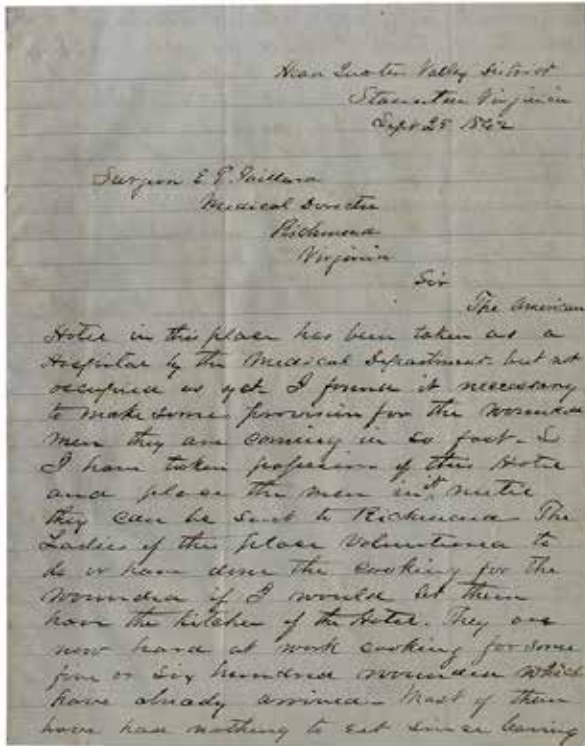 Head Quarters Valley District
Staunton Virginia
Sept 25 1862
Surgeon E P.
Medical Director
Richmond
Virginia
Sir
The American
Hotel in this place has been taken as a
Hospital by the Medical Department but not
occupied as yet I found it necessary
to make some provision for the wounded
men they are coming in so fast. So
I have taken possession of this Hotel
and place the men in it until
they can be sent to Richmond The
Ladies of this place Volunteered to
do or have done the cooking for the
wounded if I would let them
have the Kitchen of the Hotel. They are
now hard at work cooking for some
five or six hundred wounded which
have already arrived - Most of them
have had nothing to eat since leaving